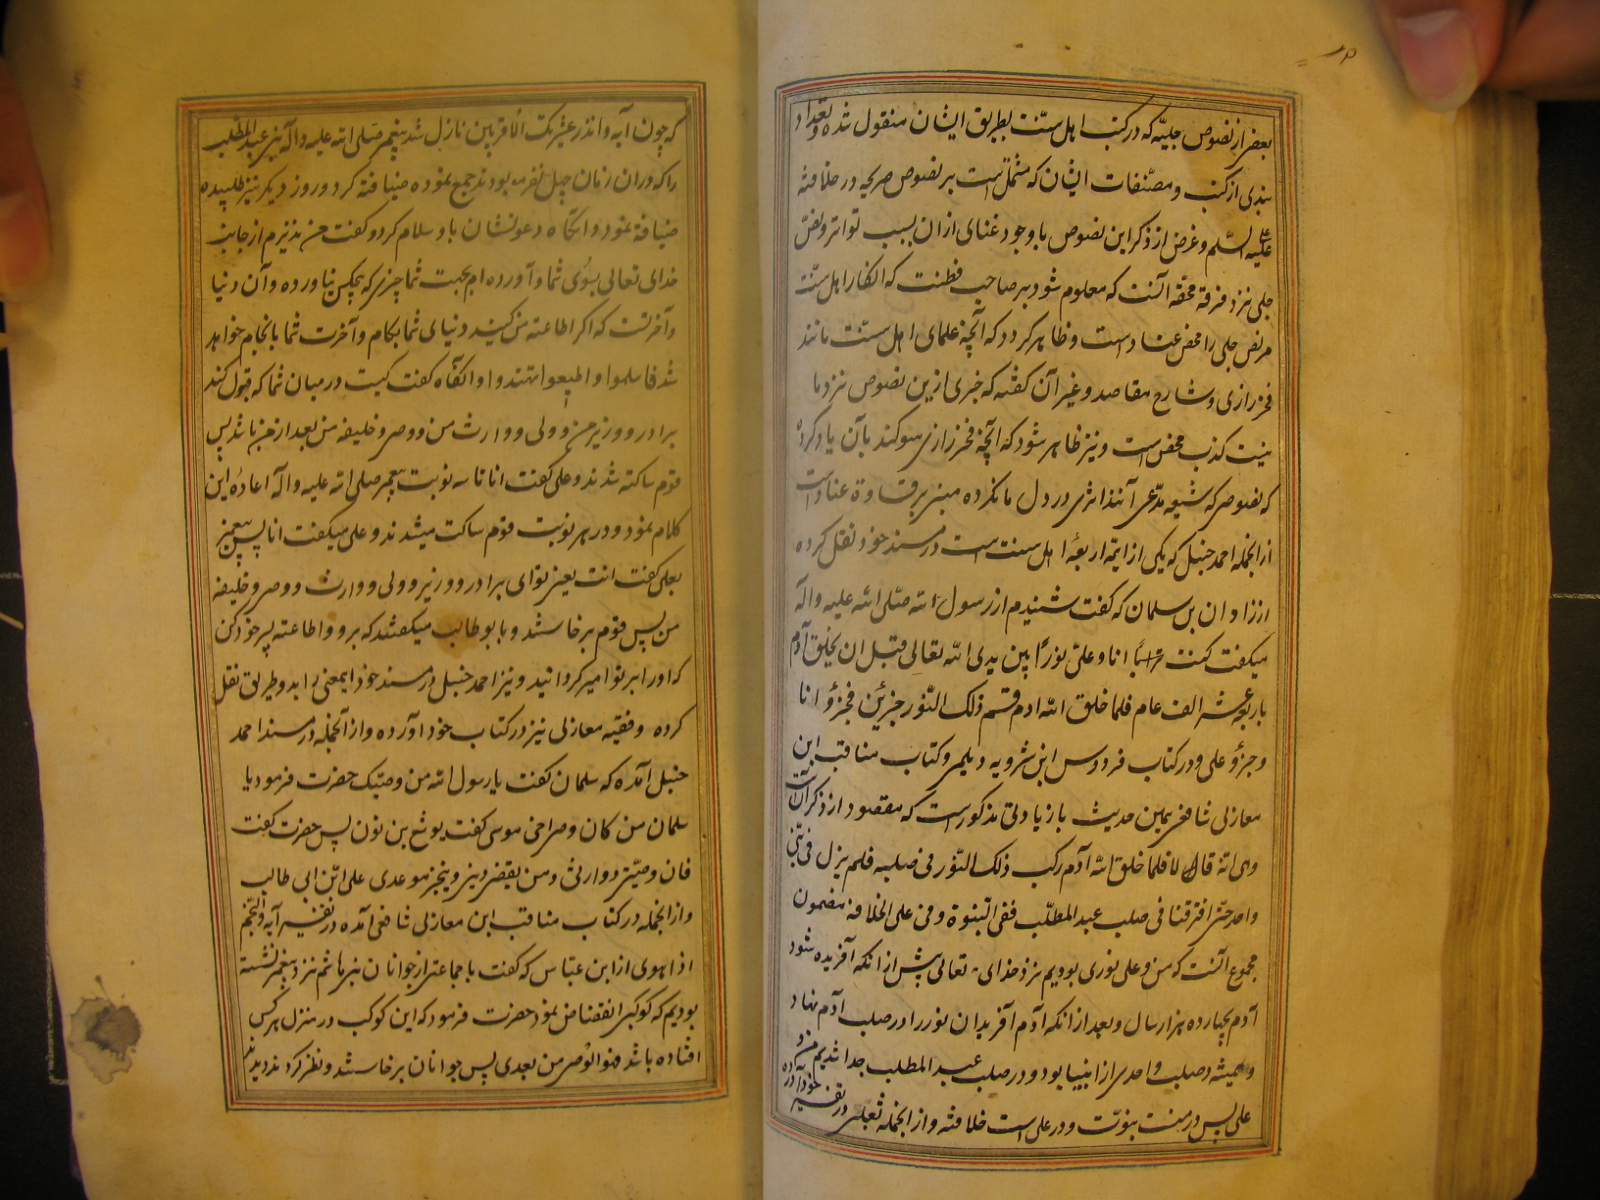 بعضی از نصوص جلیّه که در کتب اهل سنّت بطریق ایشان منقول شده و تعداد
بندی از کتب و مصنّفات ایشان که مشتمل است بر نصوص صریحه در خلافة
علیه السلم و غرض از ذکر این نصوص با وجود غنای از ان بسبب تواتر نصّ
جلی نزد فرقه محقه آنست که معلوم شود بر صاحب فطنت که انکار اهل سنّت
مر نص جلی را محض عناد است و ظاهر کردد که آنچه علمای اهل سنّت مانند
فخر رازی و شارح مقاصد و غیر آن کفته که خبری ازین نصوص نزد ما
نیست کذب محض است و نیز ظاهر شود که آنچه فخر رازی سوکند بآن یاد کرده
که نصوص که شیعه مدّعی آنند اثری در دل ما نکرده مبنی بر قساوة عناد است
از انجمله احمد حنبل که یکی از ائمّه اربعهٔ اهل سنت است در مسند خود نقل کرده
از زاذان بن سلمان که کفت شنیدم از رسول الله صلّی الله علیه وآله
میکفت کنت انا وعلیّ نورًا بین یدی الله تعالی قبل ان یخلق آدم
باربعة عشر الف عام فلما خلق الله ادم قسم ذلک النّور جزئین فجزؤ انا
وجزؤ علی و در کتاب فردوس ابن شرویه دیلمی و کتاب مناقب ابن
مغازلی شافعی همین حدیث با زیادتی مذکور است که مقصود از ذکر آن آنست
وهی انّه قال فلما خلق الله آدم رکب ذلک النّور فی صلبه فلم یزل فی شئ
واحد حتی افترقنا فی صلب عبد المطلّب ففی النّبوة وفی علی الخلافة مضمون
مجموع آنست که من و علی نوری بودیم نزد خدای تعالی پیش از انکه آفریده شود
آدم بچهارده هزار سال و بعد از انکه آدم آفرید ان نور را در صلب آدم نهاد
و همیشه در صلب واحدی از انبیا بود و در صلب عبد المطلب جدا شدیم من و
علی پس در منست نبوّت و در علی است خلافة و از انجمله ثعلبی در تفسیر خود آورده
که چون آیه وانذر عشیرتک الاقربین نازل شد پیغمبر صلی الله علیه وآله بنی عبدالمطلب
را که دران زمان چهل نفر بودند جمع نموده ضیافة کرد و روز دیکر نیز طلبیده
ضیافة نمود و انکاه دعوتشان باسلام کرد و کفت من نذیرم از جانب
خدای تعالی بسوی شما و آورده ام بجهت شما چیزی که هیچکس نیاورده و آن دنیا
و آخرتست که اکر اطاعته من کنید دنیای شما بکام و آخرت شما بانجام خواهد
شد فاسلموا واطیعوا تهتدوا و انکاه کفت کیست در میان شما که قبول کند
برادر و وزیر من و ولی و وارث من و وصی و خلیفه من بعد از من باشد پس
قوم ساکته شدند و علی کفت انا تا سه نوبت پیغمبر صلی الله علیه وآله اعادهٔ این
کلام نمود و در هر نوبت قوم ساکت میشدند و علی میکفت انا پس پیغمبر
بعلی کفت انت یعنی توای برادر و وزیر و ولی و وارث و وصی و خلیفه
من پس قوم برخاستند و با بو طالب میکفتند که برو و اطاعته پسر خود کن
که او را بر تو امیر کردانید و نیز احمد حنبل در مسند خود اینمعنی را بدو طریق نقل
کرده و فقیه مغازلی نیز در کتاب خود آورده و از آنجمله در مسند احمد
حنبل آمده که سلمان کفت یا رسول الله من وصیّک حضرت فرمود یا
سلمان من کان وصی اخی موسی کفت یوشع بن نون پس حضرت کفت
فان وصیّی ووارثی ومن یقضی دینی وینجز موعدی علی ابن ابی طالب
و از انجمله در کتاب مناقب ابن مغازلی شافعی آمده در تفسیر آیه والنّجم
اذا هوی از ابن عبّاس که کفت با جماعتی از جوانان بنی هاشم نزد پیغمبر نشسته
بودیم که کوکبی انقضاض نمود حضرت فرمود که این کوکب در منزل هر کس
افتاده باشد فهو الوصی من بعدی پس جوانان برخاستند و نظر کردند دیدند